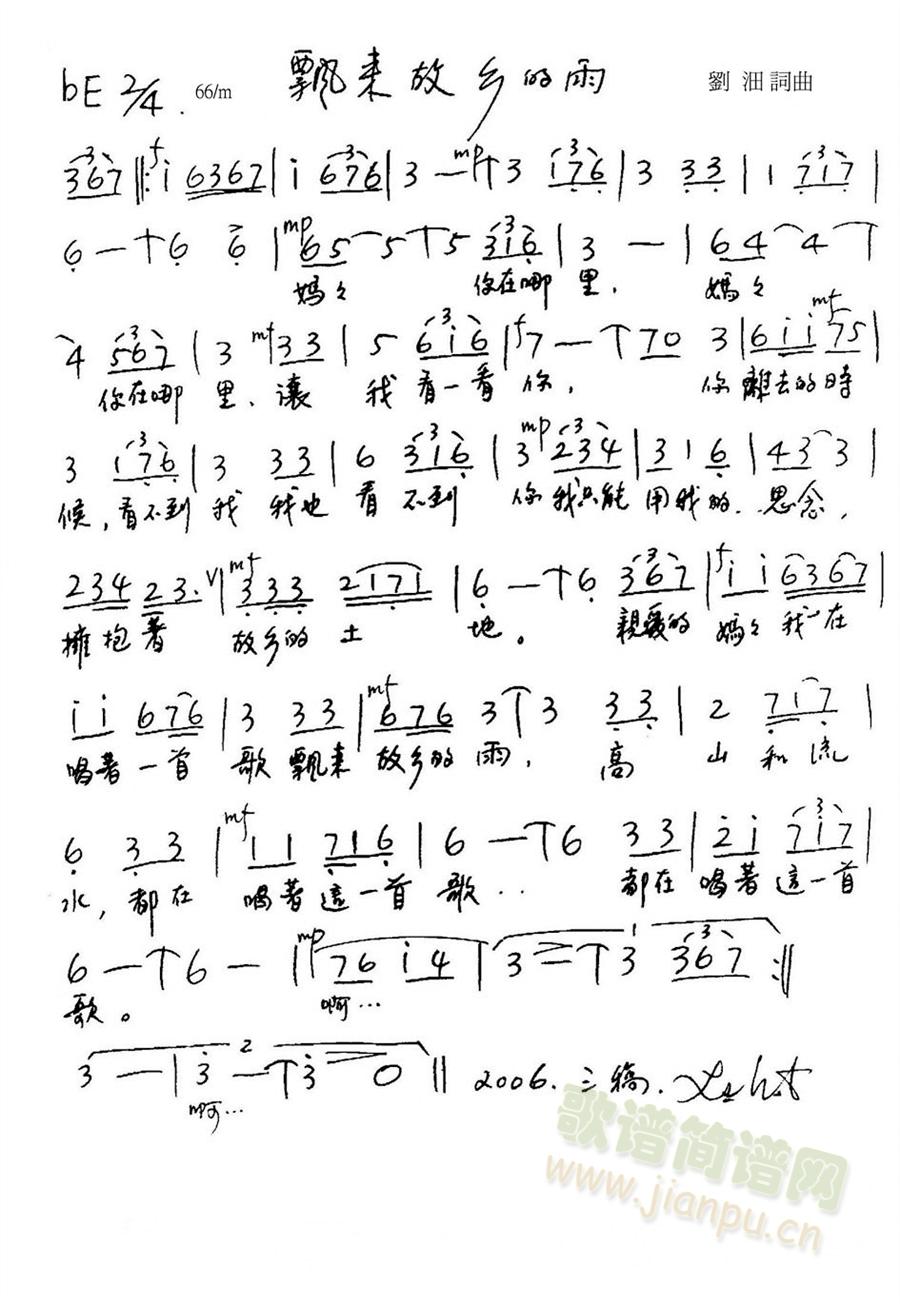 bE 2/4. 66/m 飄来放乡的雨 劉 沺 詞曲
3 6 7 ‖: f i 6 3 6 7 | i 6 7 6 | 3 — mp | 3 1 7 6 | 3 3 3 | 1 7 1 7 |
6 — | 6 6 | mp 6 5 5 | 5 3 1 6 | 3 — | 6 4 4 |
媽々 你在哪 里, 媽々
4 5 6 7 | 3 mf 3 3 | 5 6 i 6 | f 7 — | 7 0 3 | 6 i i mf 7 5 |
你在哪 里、讓 我 看一看 你, 你 離去的時
3 1 7 6 | 3 3 3 | 6 3 1 6 | mp 3 2 3 4 | 3 1 6 | 4 3 3 |
候,看不到 我 我也 看 不到 你 我只能 用我的 思念,
2 3 4 2 3. V | mf 3 3 3 2 1 7 1 | 6 — | 6 3 6 7 | f i i 6 3 6 7 |
擁抱著 故乡的 土 地。 親爱的 媽々 我一在
i i 6 7 6 | 3 3 3 | mf 6 7 6 3 | 3 3 3 | 2 7 1 7 |
唱著一首 歌 飄来 故乡的 雨, 高 山 和流
6 3 3 | mf 1 1 7 1 6 | 6 — | 6 3 3 | 2 i 7 i 7 |
水, 都在 唱著這一首 歌.. 都在 唱著 這一首
6 — | 6 — | mp 7 6 i 4 | 3 — | 3 3 6 7 :‖
歌。 啊...
3 — | 3 — | 3 0 ‖ 2006. 三稿.
啊...
歌谱简谱网
www.jianpu.cn